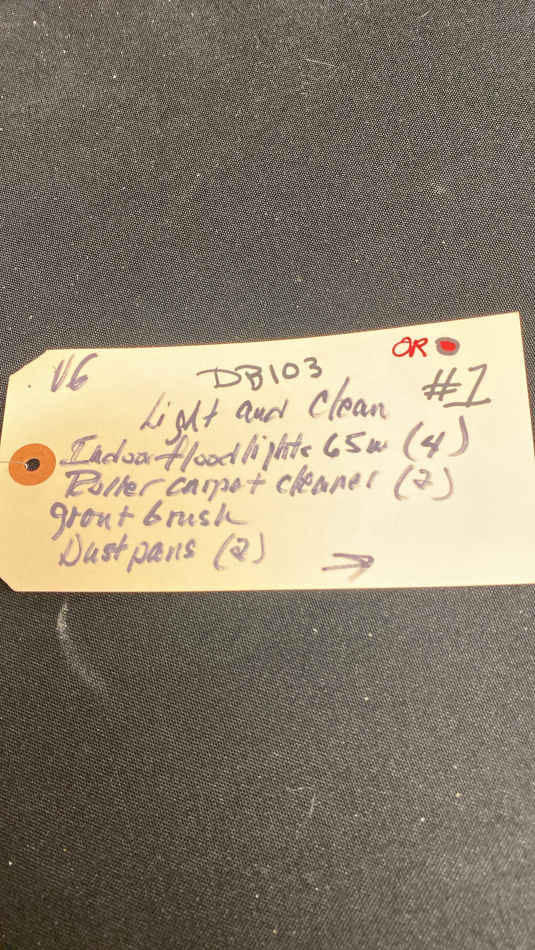 V6 DB103 OR #1
Light and Clean
Indoor floodlights 65w (4)
Roller carpet cleaner (2)
grout brush
Dustpans (2) →